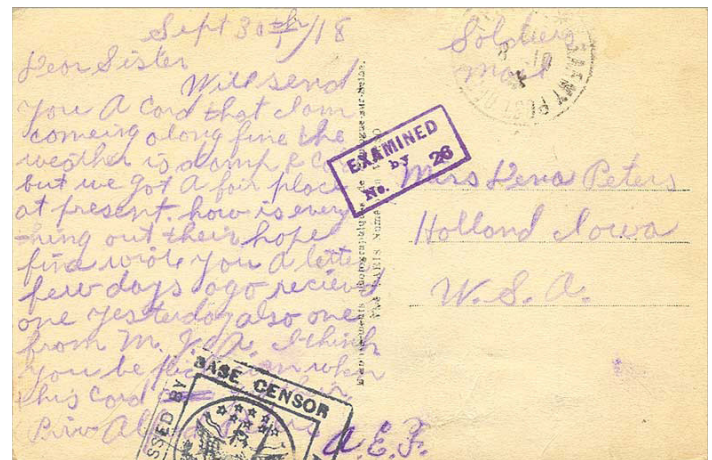 Sept 30th/18
Dear Sister
Will send
you a Card that I am
comeing along fine the
weather is damp &
but we got a fair place
at present. how is every
thing out their hope
fine wrote you a letter
few days ago recieved
one yesterday also one
from M. J. A. I think
you be
this Card
Priv
Soldiers
Mail
ARMY POST
EXAMINED
by
No. 26
Mrs Lena Peters
Holland Iowa
U. S. A.
PASSED BY
BASE CENSOR
A. E. F.